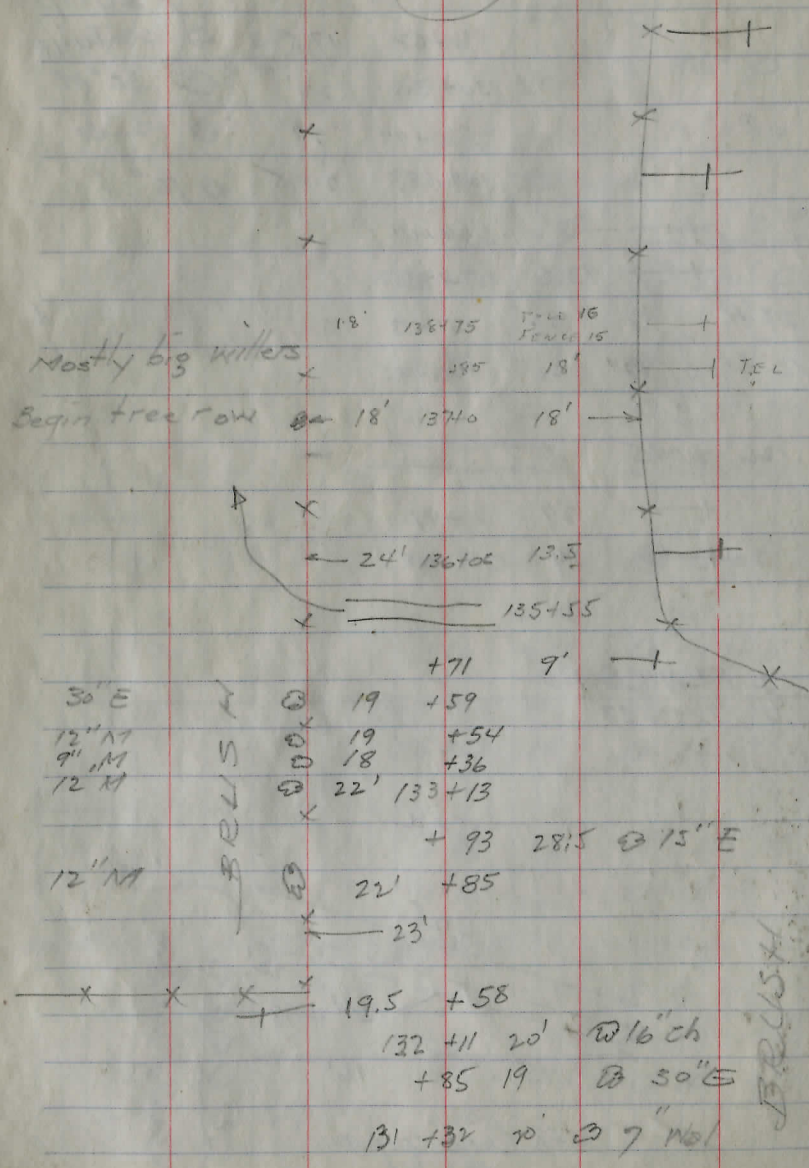 18' 138+75 FENCE 15
Mostly big willers
+85 18' TEL
Begin tree row 18' 137+0 18'
24' 136+06 13.5
135+55
+71 9'
30" E 19 +59
12" M 19 +54
9" M 18 +36
12 M 22' 133+13
BRUSH
+93 28.5 15" E
12" M 22' +85
23'
19.5 +58
132 +11 20' 16" ch
+85 19 30" E
131 +32 20' 7" Wal
BRUSH